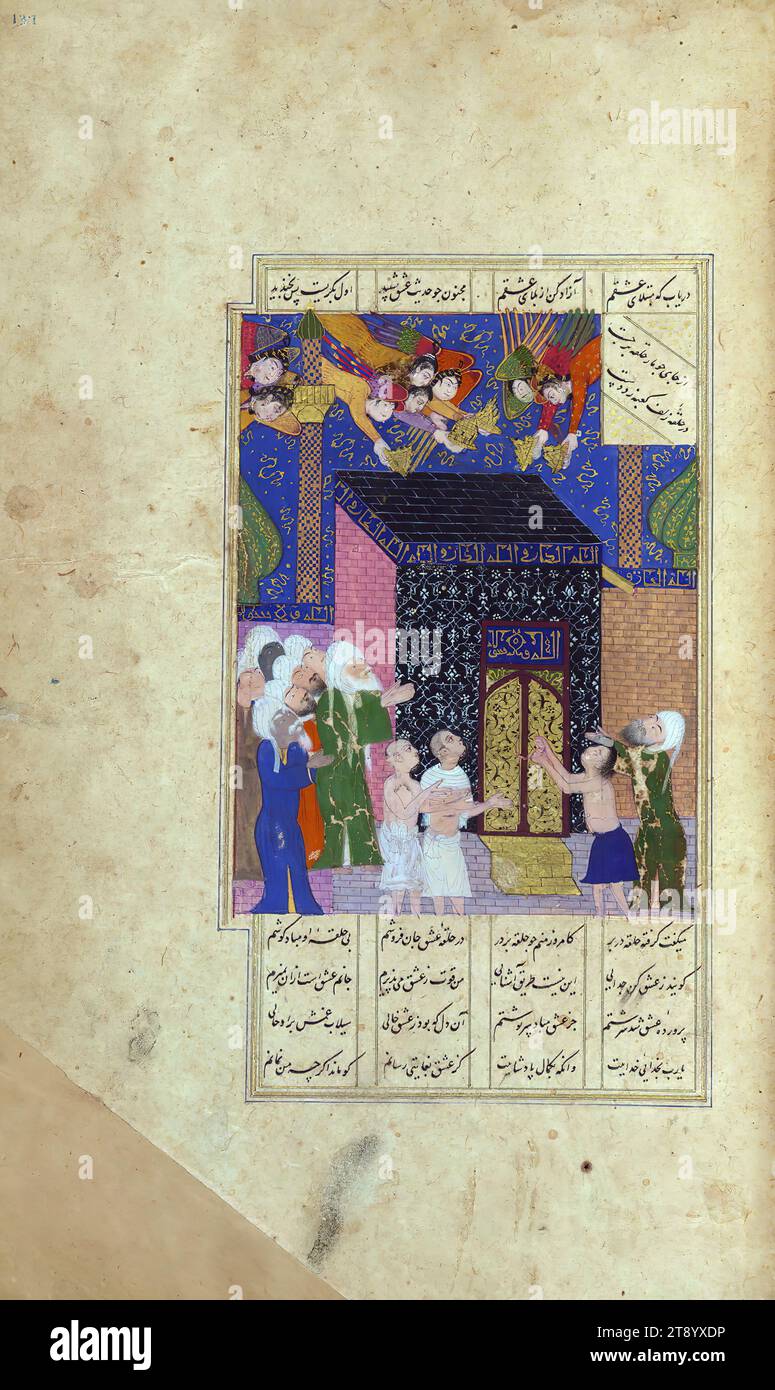 دریاب که مبتلای عشقم آزاد کن از بلای عشقم مجنون چو حدیث عشق بشنید اول بگریست پس بخندید
از جای چو مار حلقه برجست
در حلقه زلف کعبه زد دست
میگفت گرفته حلقه در بر کامروز منم چو حلقه بر در در حلقه عشق جان فروشم بی حلقه او مباد گوشم
گویند ز عشق کن جدایی این نیست طریق آشنایی من قوت ز عشق می پذیرم جانم عشق است ازان نمیرم
پرورده عشق شد سرشتم جز عشق مباد سرنوشتم آن دل که بود ز عشق خالی سیلاب غمش براد حالی
یارب بخدایی خداییت وانگه بکمال پادشاییت کز عشق بغایتی رسانم کو ماند اگرچه من نمانم
alamy
alamy
alamy
alamy
Image ID: 2T8YXDP
www.alamy.com